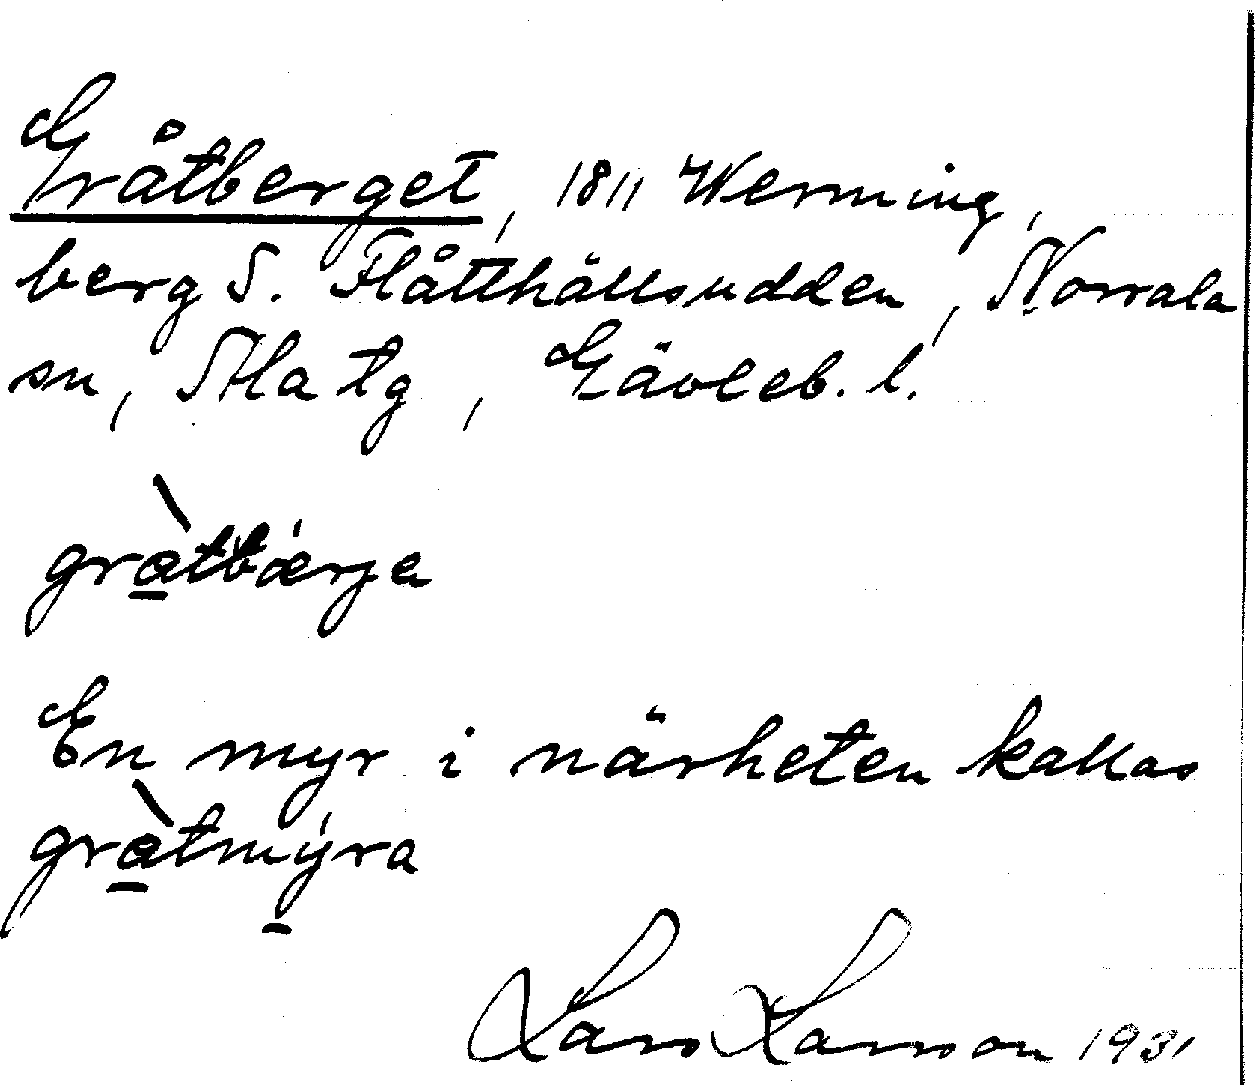 Gråtberget, 1811 Werming,
berg S. Flåtthällsudden, Norrala
sn, Ala tg, Gävleb. l.
gràtbærjen
En myr i närheten kallas
gràtmýra
Lars Larsson 1931